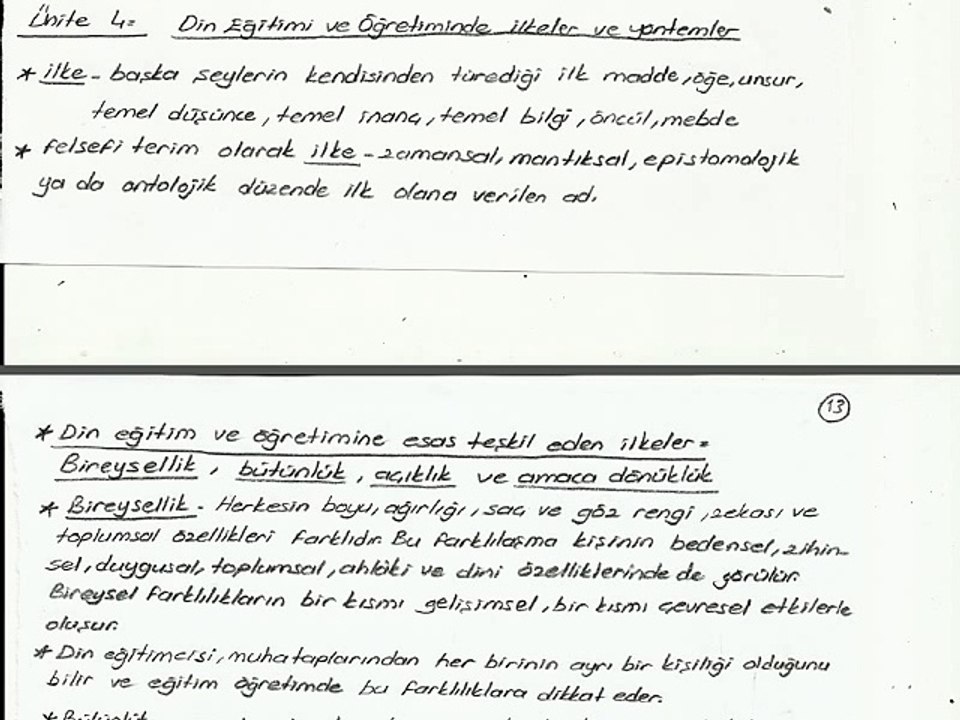 Ünite 4= Din Eğitimi ve Öğretiminde ilkeler ve yöntemler
* ilke - başka şeylerin kendisinden türediği ilk madde, öğe, unsur,
temel düşünce, temel inanç, temel bilgi, öncül, mebde
* felsefi terim olarak ilke - zamansal, mantıksal, epistomolojik
ya da ontolojik düzende ilk olana verilen ad.
13
* Din eğitim ve öğretimine esas teşkil eden ilkeler=
Bireysellik, bütünlük, açıklık ve amaca dönüklük
* Bireysellik - Herkesin boyu, ağırlığı, saç ve göz rengi, zekası ve
toplumsal özellikleri farklıdır. Bu farklılaşma kişinin bedensel, zihin-
sel, duygusal, toplumsal, ahlâki ve dini özelliklerinde de görülür.
Bireysel farklılıkların bir kısmı gelişimsel, bir kısmı çevresel etkilerle
oluşur.
* Din eğitimcisi, muhataplarından her birinin ayrı bir kişiliği olduğunu
bilir ve eğitim öğretimde bu farklılıklara dikkat eder.
* Bütünlük